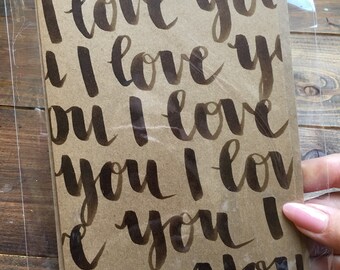 I love you
u I love y
ou I love
you I lov
e you I
you